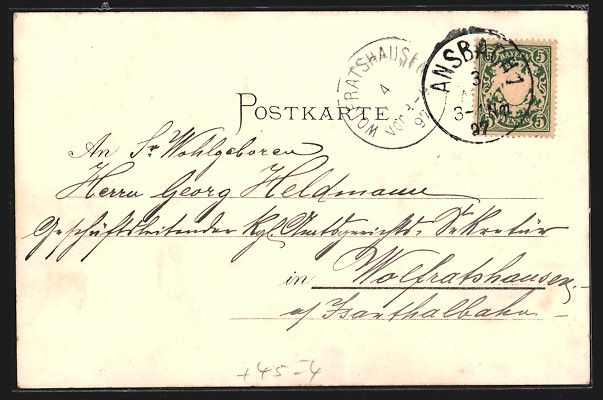 WOLFRATSHAUSEN
4
VOR
ANSBACH 1
3
3-4
97
BAYERN
5 5
PFENNIG
5 5
POSTKARTE
An Sr. Wohlgeboren
Herrn Georg Heldmann
Geschäftsleitender kgl. Amtsgerichts-Sekretär
in Wolfratshausen
a/ Isarthalbahn.
+45-4